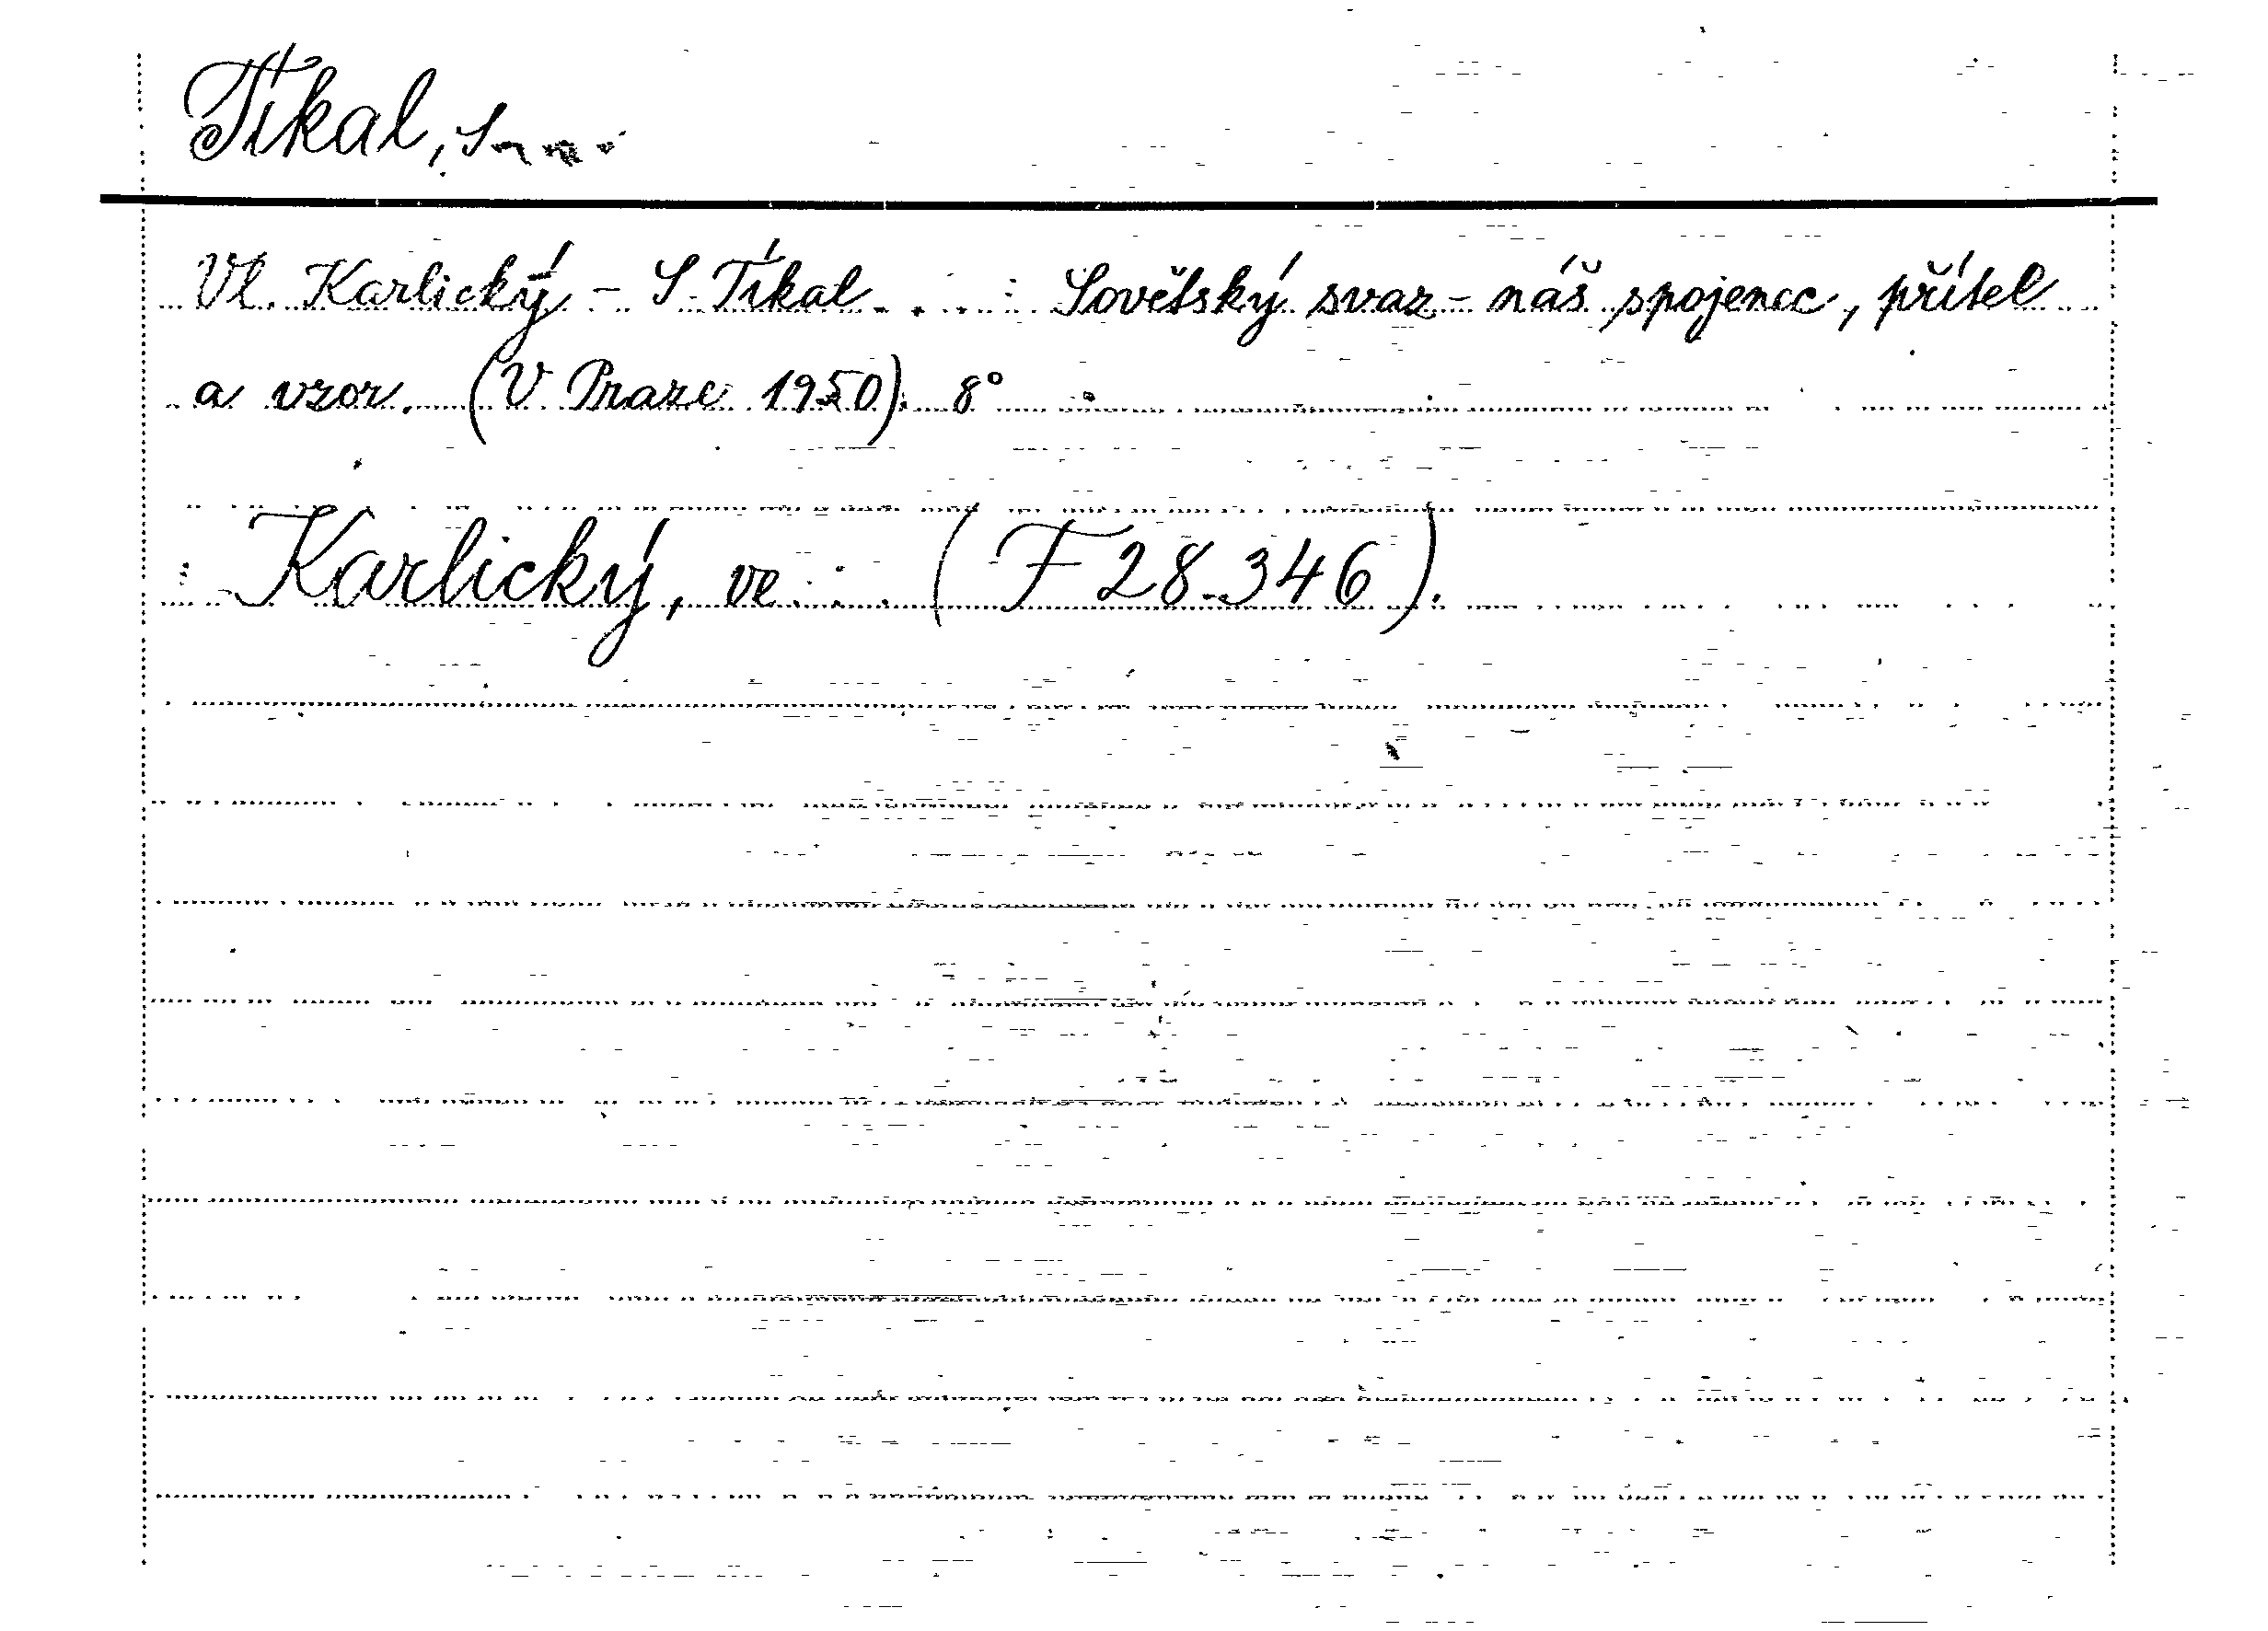 Tíkal, S
Vl. Karlický - S. Tíkal...: Sovětský svaz - náš spojenec, přítel
a vzor. (V Praze 1950). 8°
Karlický, ve... (F 28.346).